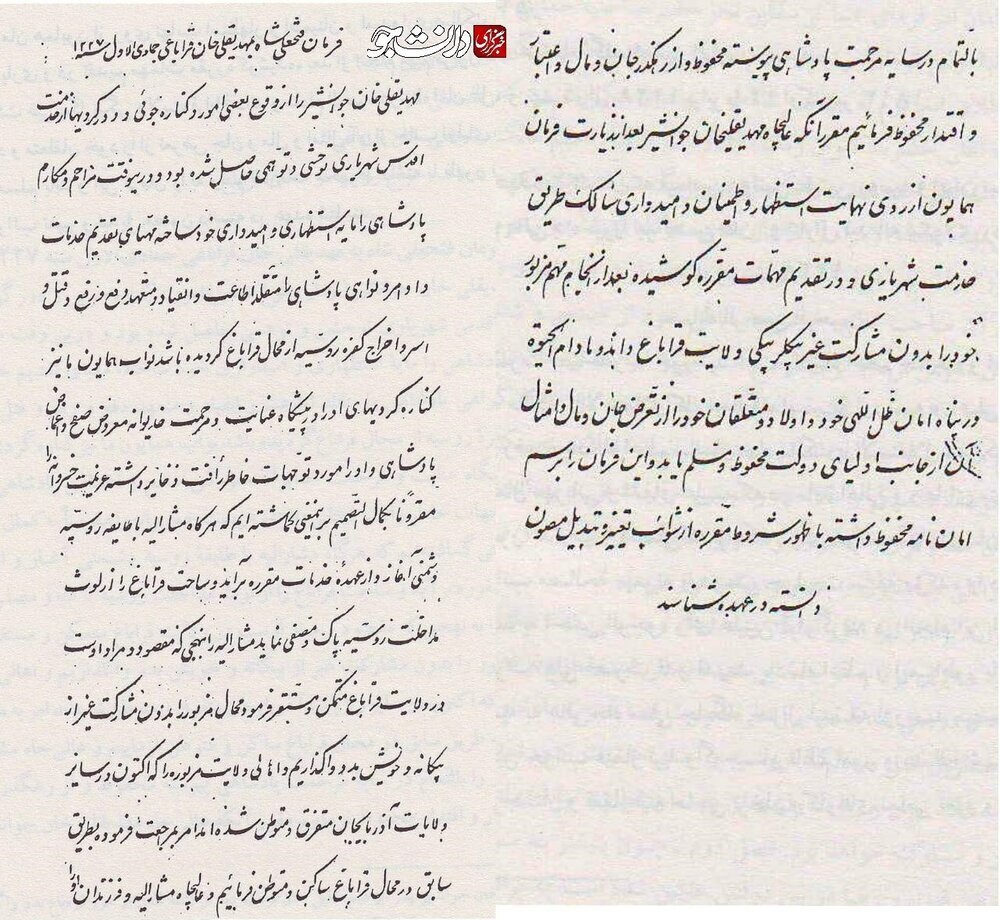 فرمان فتحعلی شاه بمهدیقلی خان قراباغی جمادی الاول سنه ۱۲۲۷
خبرگزاری دانشجو
مهدیقلی خان جوانشیر را از وقوع بعضی امور و کناره جوئی و دور کردیها از خدمت
اقدس شهریاری توحشی و توهمی حاصل شده بود و درینوقت مراحم و مکارم
پادشاهی را مایه استظهاری و امیدواری خود ساخته مهیای تقدیم خدمات
و اوامر و نواهی پادشاهی را متقلد اطاعت و انقیاد و متعهد دفع و رفع و قتل و
اسر و اخراج کفره روسیه از محال قراباغ گردیده باشد نواب همایون ما نیز
کناره گرویهای او را در پیشگاه عنایت و مرحمت خدیوانه معروض صفح و اغماض
پادشاهی و او را مورد توجهات خاطر رأفت ذخایر داشته عزیمت خسروانه را
مقرون بکمال التصمیم بر اینمعنی گماشته ایم که هر گاه مشارالیه با طایفه روسیه
دشمنی آغاز و از عهدۀ خدمات مقرره برآید و ساحت قراباغ را از لوث
مداخلت روسیه پاک و مصفی نماید مشارالیه را بنهجی که مقصود و مراد اوست
در ولایت قراباغ متمکن و مستقر فرموده محال مزبور را بدون مشارکت غیر از
بیگانه و خویش بدو واگذاریم و اهالی ولایت مزبوره را که اکنون در سایر
ولایات آذربایجان متفرق و متوطن شده اند امر بمراجعت فرموده بطریق
سابق در محال قراباغ ساکن و متوطن فرمائیم و عالیجاه مشارالیه و فرزندان او را
بالتمام در سایه مرحمت پادشاهی پیوسته محفوظ و از رهگذر جان و مال و اعتبار
و اقتدار محفوظ فرمائیم مقرر آنکه عالیجاه مهدیقلیخان جوانشیر بعد از زیارت فرمان
همایون از روی نهایت استظهار و اطمینان و امیدواری سالک طریق
خدمت شهریاری و در تقدیم مهمات مقرره کوشیده بعد از انجام مهم مزبور
خود را بدون مشارکت غیر بیگلربیگی ولایت قراباغ داند و مادام الحیوة
در پناه امان ظل اللهی خود و اولاد و متعلقان خود را از تعرض جان و مال و امثال
آن از جانب اولیای دولت محفوظ و مسلم یابد و این فرمان را برسم
امان نامه محفوظ داشته با ظهور شروط مقرره از شوائب تغییر و تبدیل مصون
دانسته در عهده شناسند